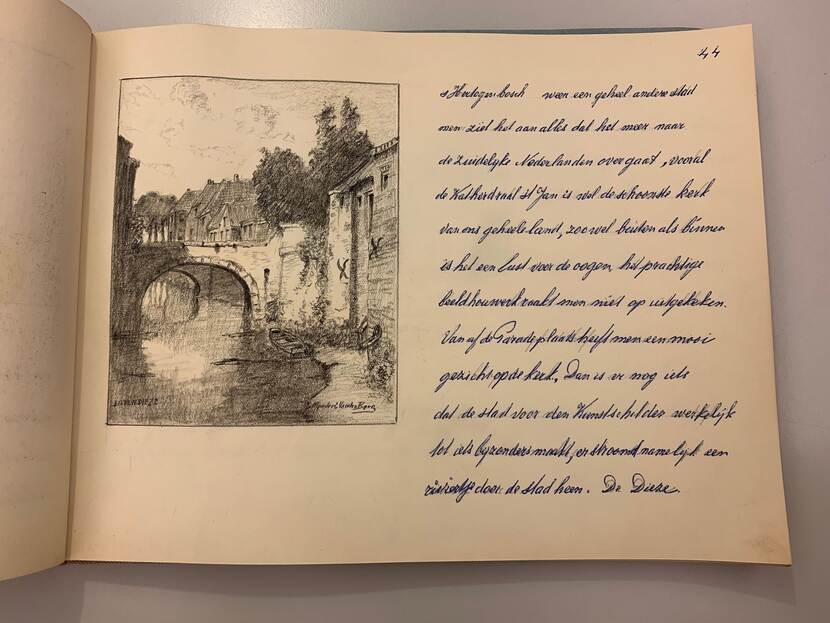 44
s Hertogenbosch weer een geheel andere stad
men ziet het aan alles dat het meer naar
de zuidelyke Nederlanden overgaat, vooral
de Kathedraal st Jan is wel de schoonste kerk
van ons geheele land, zoowel buiten als binnen
is het een lust voor de oogen, het prachtige
beeldhouwerk raakt men niet op uitgekeken.
Van af de Paradeplaats heeft men een mooi
gezicht op de kerk. Dan is er nog iets
dat de stad voor den Kunstschilder werkelijk
tot iets byzonders maakt, er stroomd namelyk een
riviertje door de stad heen. De Dieze.